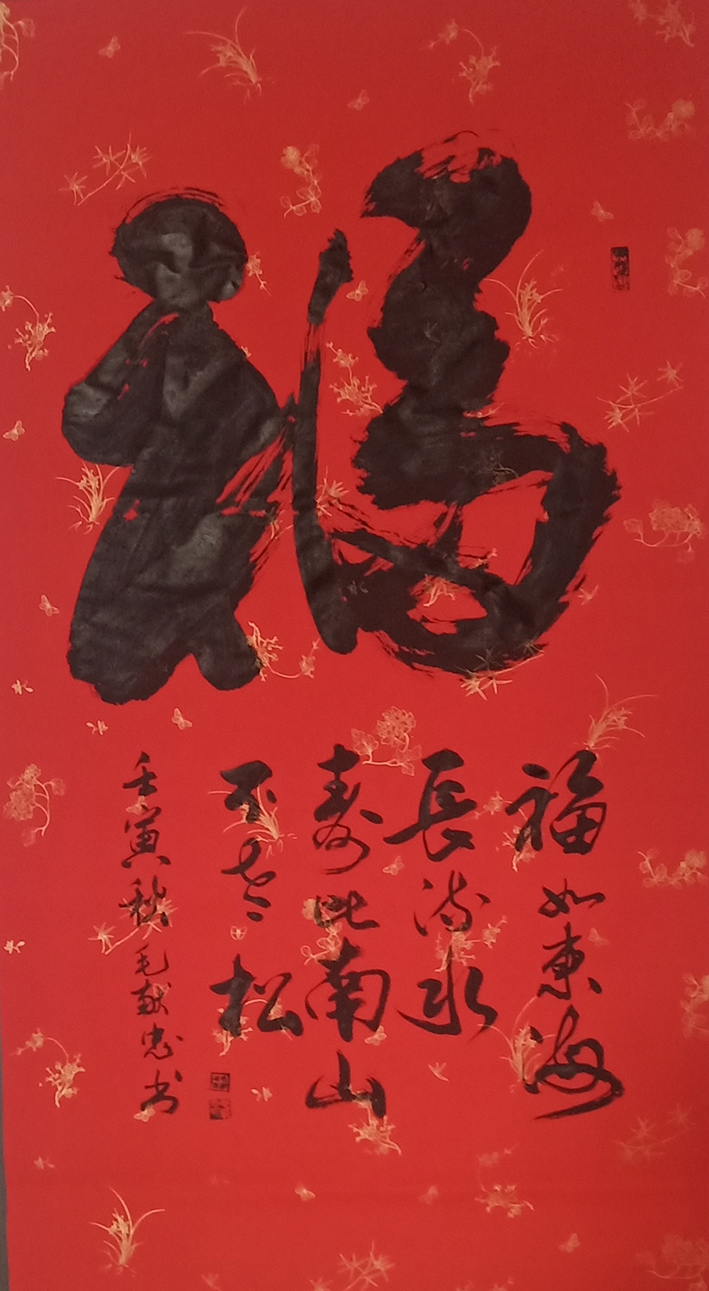 福
福如東海
長流水
寿比南山
不老松
壬寅秋 毛献忠书